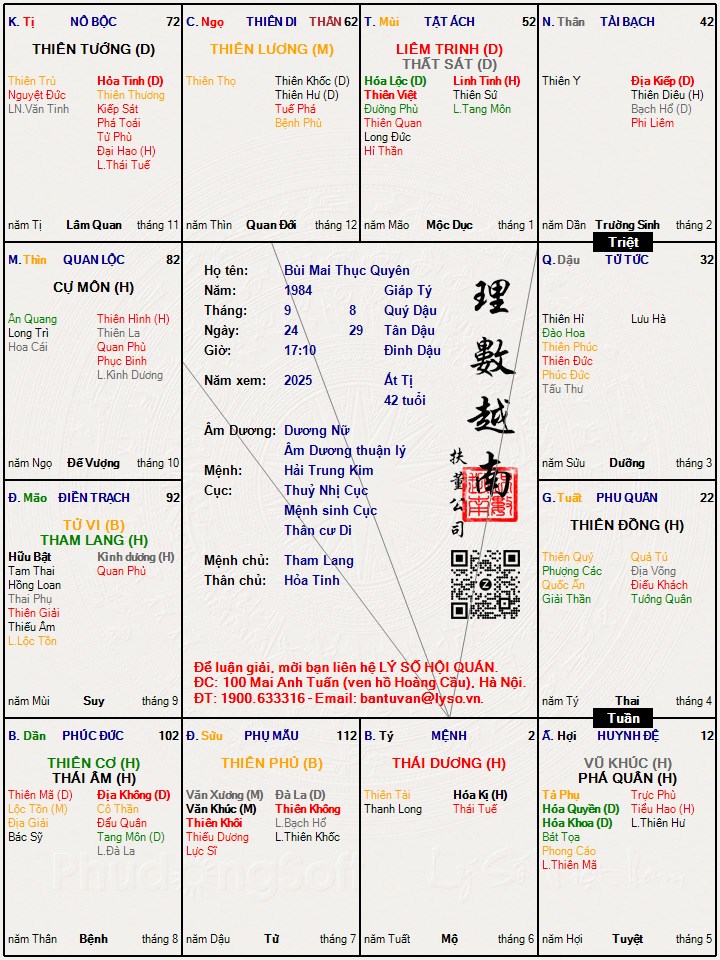 K. Tị NÔ BỘC 72
THIÊN TƯỚNG (D)
Thiên Trù Hỏa Tinh (D)
Nguyệt Đức Thiên Thương
LN.Văn Tinh Kiếp Sát
Phá Toái
Tử Phù
Đại Hao (H)
L.Thái Tuế
năm Tị Lâm Quan tháng 11
C. Ngọ THIÊN DI THÂN 62
THIÊN LƯƠNG (M)
Thiên Thọ Thiên Khốc (D)
Thiên Hư (D)
Tuế Phá
Bệnh Phù
năm Thìn Quan Đới tháng 12
T. Mùi TẬT ÁCH 52
LIÊM TRINH (D)
THẤT SÁT (D)
Hóa Lộc (D) Linh Tinh (H)
Thiên Việt Thiên Sứ
Đường Phù L.Tang Môn
Thiên Quan
Long Đức
Hỉ Thần
năm Mão Mộc Dục tháng 1
N. Thân TÀI BẠCH 42
Thiên Y Địa Kiếp (D)
Thiên Diêu (H)
Bạch Hổ (D)
Phi Liêm
năm Dần Trường Sinh tháng 2
Triệt
M. Thìn QUAN LỘC 82
CỰ MÔN (H)
Ân Quang Thiên Hình (H)
Long Trì Thiên La
Hoa Cái Quan Phù
Phục Binh
L.Kình Dương
năm Ngọ Đế Vượng tháng 10
Họ tên: Bùi Mai Thục Quyên
Năm: 1984 Giáp Tý
Tháng: 9 8 Quý Dậu
Ngày: 24 29 Tân Dậu
Giờ: 17:10 Đinh Dậu
Năm xem: 2025 Ất Tị
42 tuổi
Âm Dương: Dương Nữ
Âm Dương thuận lý
Mệnh: Hải Trung Kim
Cục: Thuỷ Nhị Cục
Mệnh sinh Cục
Thân cư Di
Mệnh chủ: Tham Lang
Thân chủ: Hỏa Tinh
理數越南
扶董公司
Để luận giải, mời bạn liên hệ LÝ SỐ HỘI QUÁN.
ĐC: 100 Mai Anh Tuấn (ven hồ Hoàng Cầu), Hà Nội.
ĐT: 1900.633316 - Email: bantuvan@lyso.vn.
Q. Dậu TỬ TỨC 32
Thiên Hỉ Lưu Hà
Đào Hoa
Thiên Phúc
Thiên Đức
Phúc Đức
Tấu Thư
năm Sửu Dưỡng tháng 3
Đ. Mão ĐIỀN TRẠCH 92
TỬ VI (B)
THAM LANG (H)
Hữu Bật Kình dương (H)
Tam Thai Quan Phủ
Hồng Loan
Thai Phụ
Thiên Giải
Thiếu Âm
L.Lộc Tồn
năm Mùi Suy tháng 9
G. Tuất PHU QUÂN 22
THIÊN ĐỒNG (H)
Thiên Quý Quả Tú
Phượng Các Địa Võng
Quốc Ấn Điếu Khách
Giải Thần Tướng Quân
năm Tý Thai tháng 4
Tuần
B. Dần PHÚC ĐỨC 102
THIÊN CƠ (H)
THÁI ÂM (H)
Thiên Mã (D) Địa Không (D)
Lộc Tồn (M) Cô Thần
Địa Giải Đẩu Quân
Bác Sỹ Tang Môn (D)
L.Đà La
năm Thân Bệnh tháng 8
Đ. Sửu PHỤ MẪU 112
THIÊN PHỦ (B)
Văn Xương (M) Đà La (D)
Văn Khúc (M) Thiên Không
Thiên Khôi L.Bạch Hổ
Thiếu Dương L.Thiên Khốc
Lực Sĩ
năm Dậu Tử tháng 7
B. Tý MỆNH 2
THÁI DƯƠNG (H)
Thiên Tài Hóa Kị (H)
Thanh Long Thái Tuế
năm Tuất Mộ tháng 6
Ấ. Hợi HUYNH ĐỆ 12
VŨ KHÚC (H)
PHÁ QUÂN (H)
Tả Phụ Trực Phù
Hóa Quyền (D) Tiểu Hao (H)
Hóa Khoa (D) L.Thiên Hư
Bát Tọa
Phong Cáo
L.Thiên Mã
năm Hợi Tuyệt tháng 5